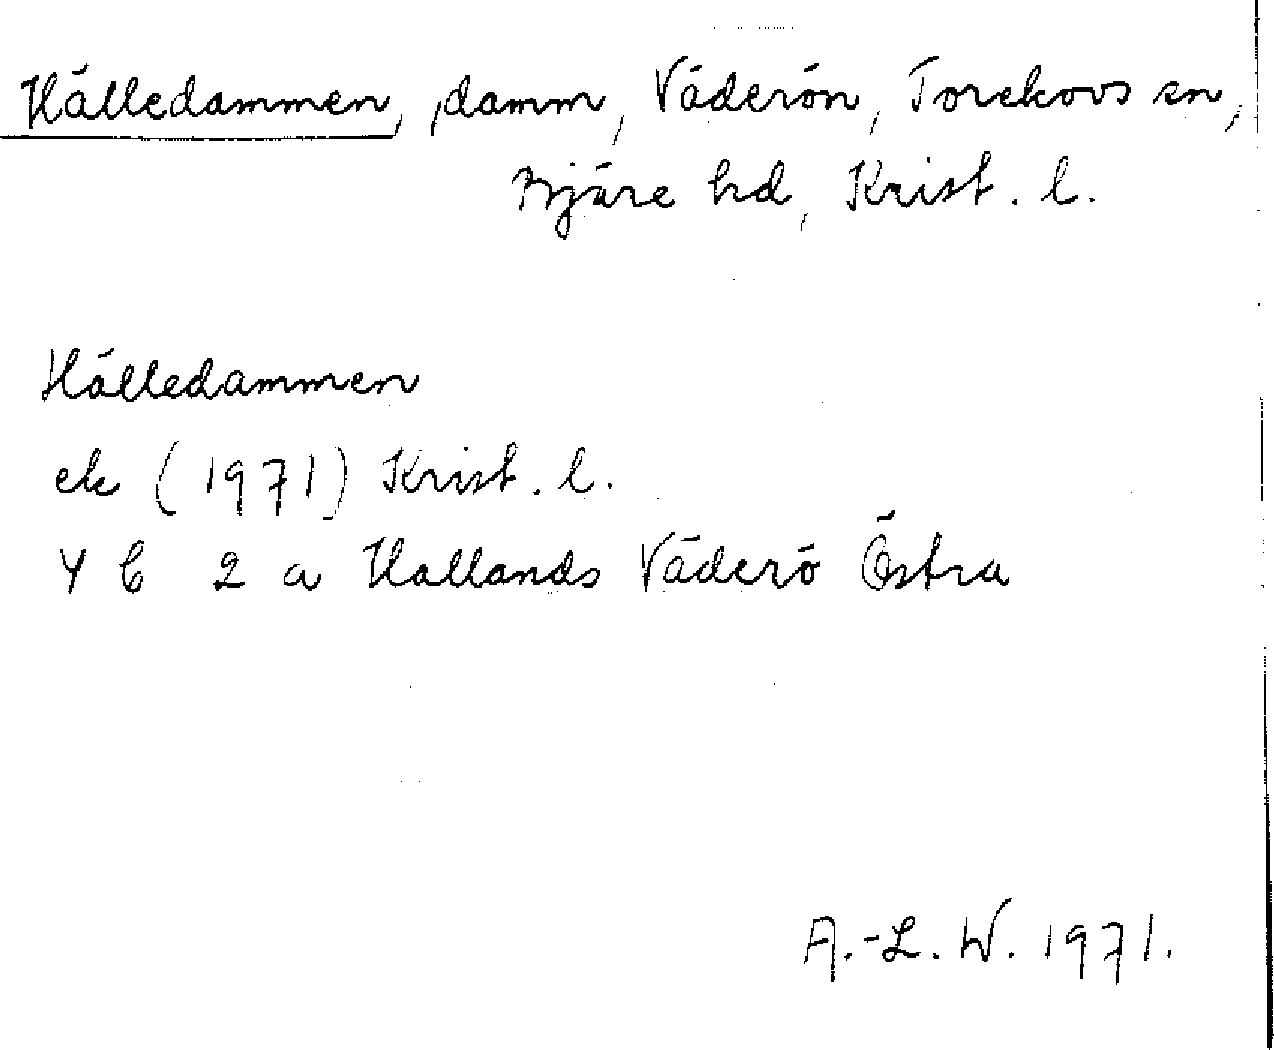 Hälledammen, damm, Väderön, Torekovs sn,
Bjäre hd, Krist. l.
Hälledammen
ek (1971) Krist. l.
4 C 2 a Hallands Väderö Östra
A.-L. W. 1971.